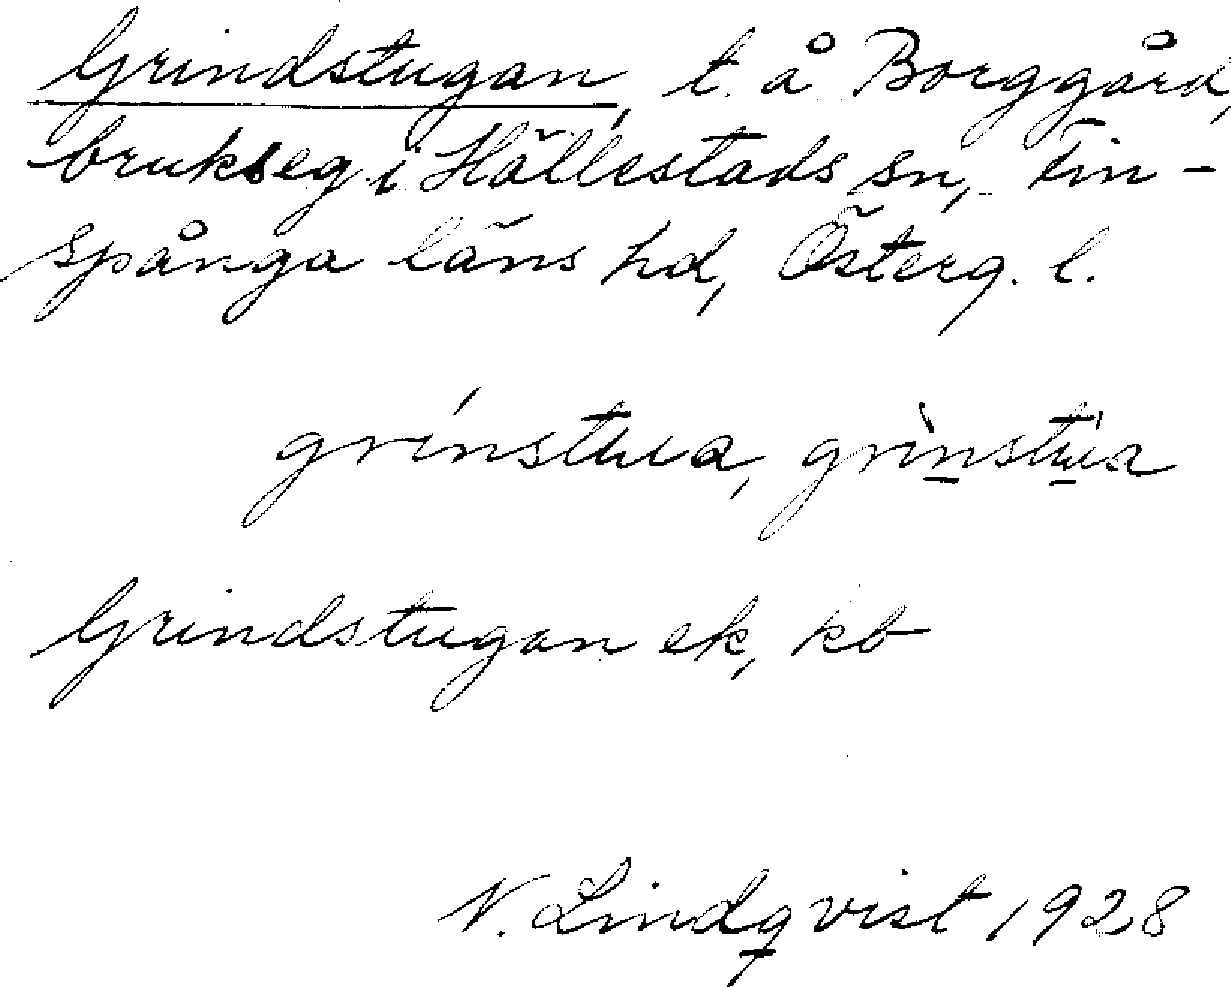 Grindstugan, t. å Borggård,
brukseg i Hällestads sn, Fin-
spånga läns hd, Österg. l.
grínstua, grìnstùa
Grindstugan ek, kb
N. Lindqvist 1928